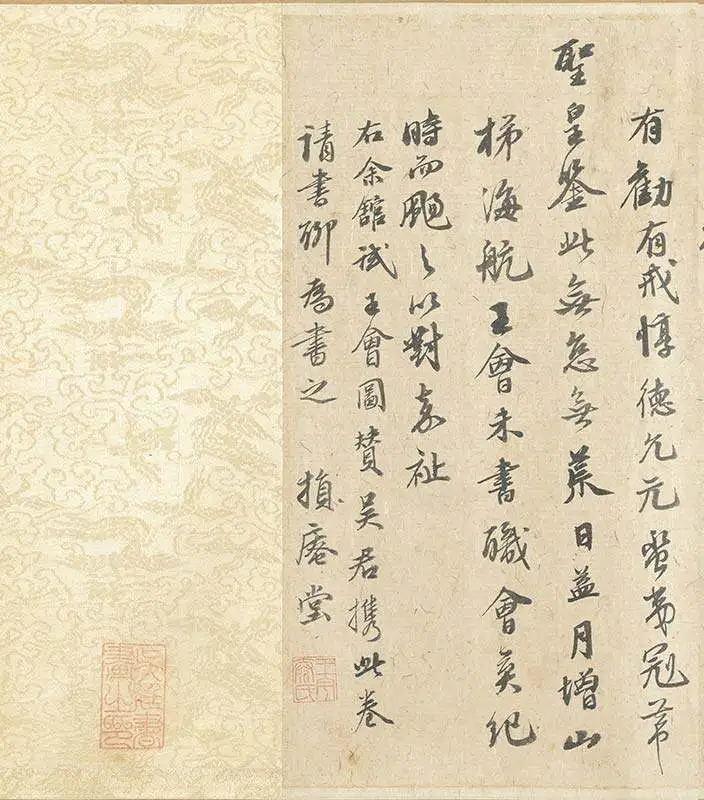 有勸有戒惇德允元蠻夷冠帶
聖皇鑒此無怠無荒日益月增山
梯海航王會未書職會奚紀
時而颺之以對嘉祉
右余館試王會圖贊吳君攜此卷
請書聊為書之 損庵堂
王宇泰氏
吳廷書畫之印